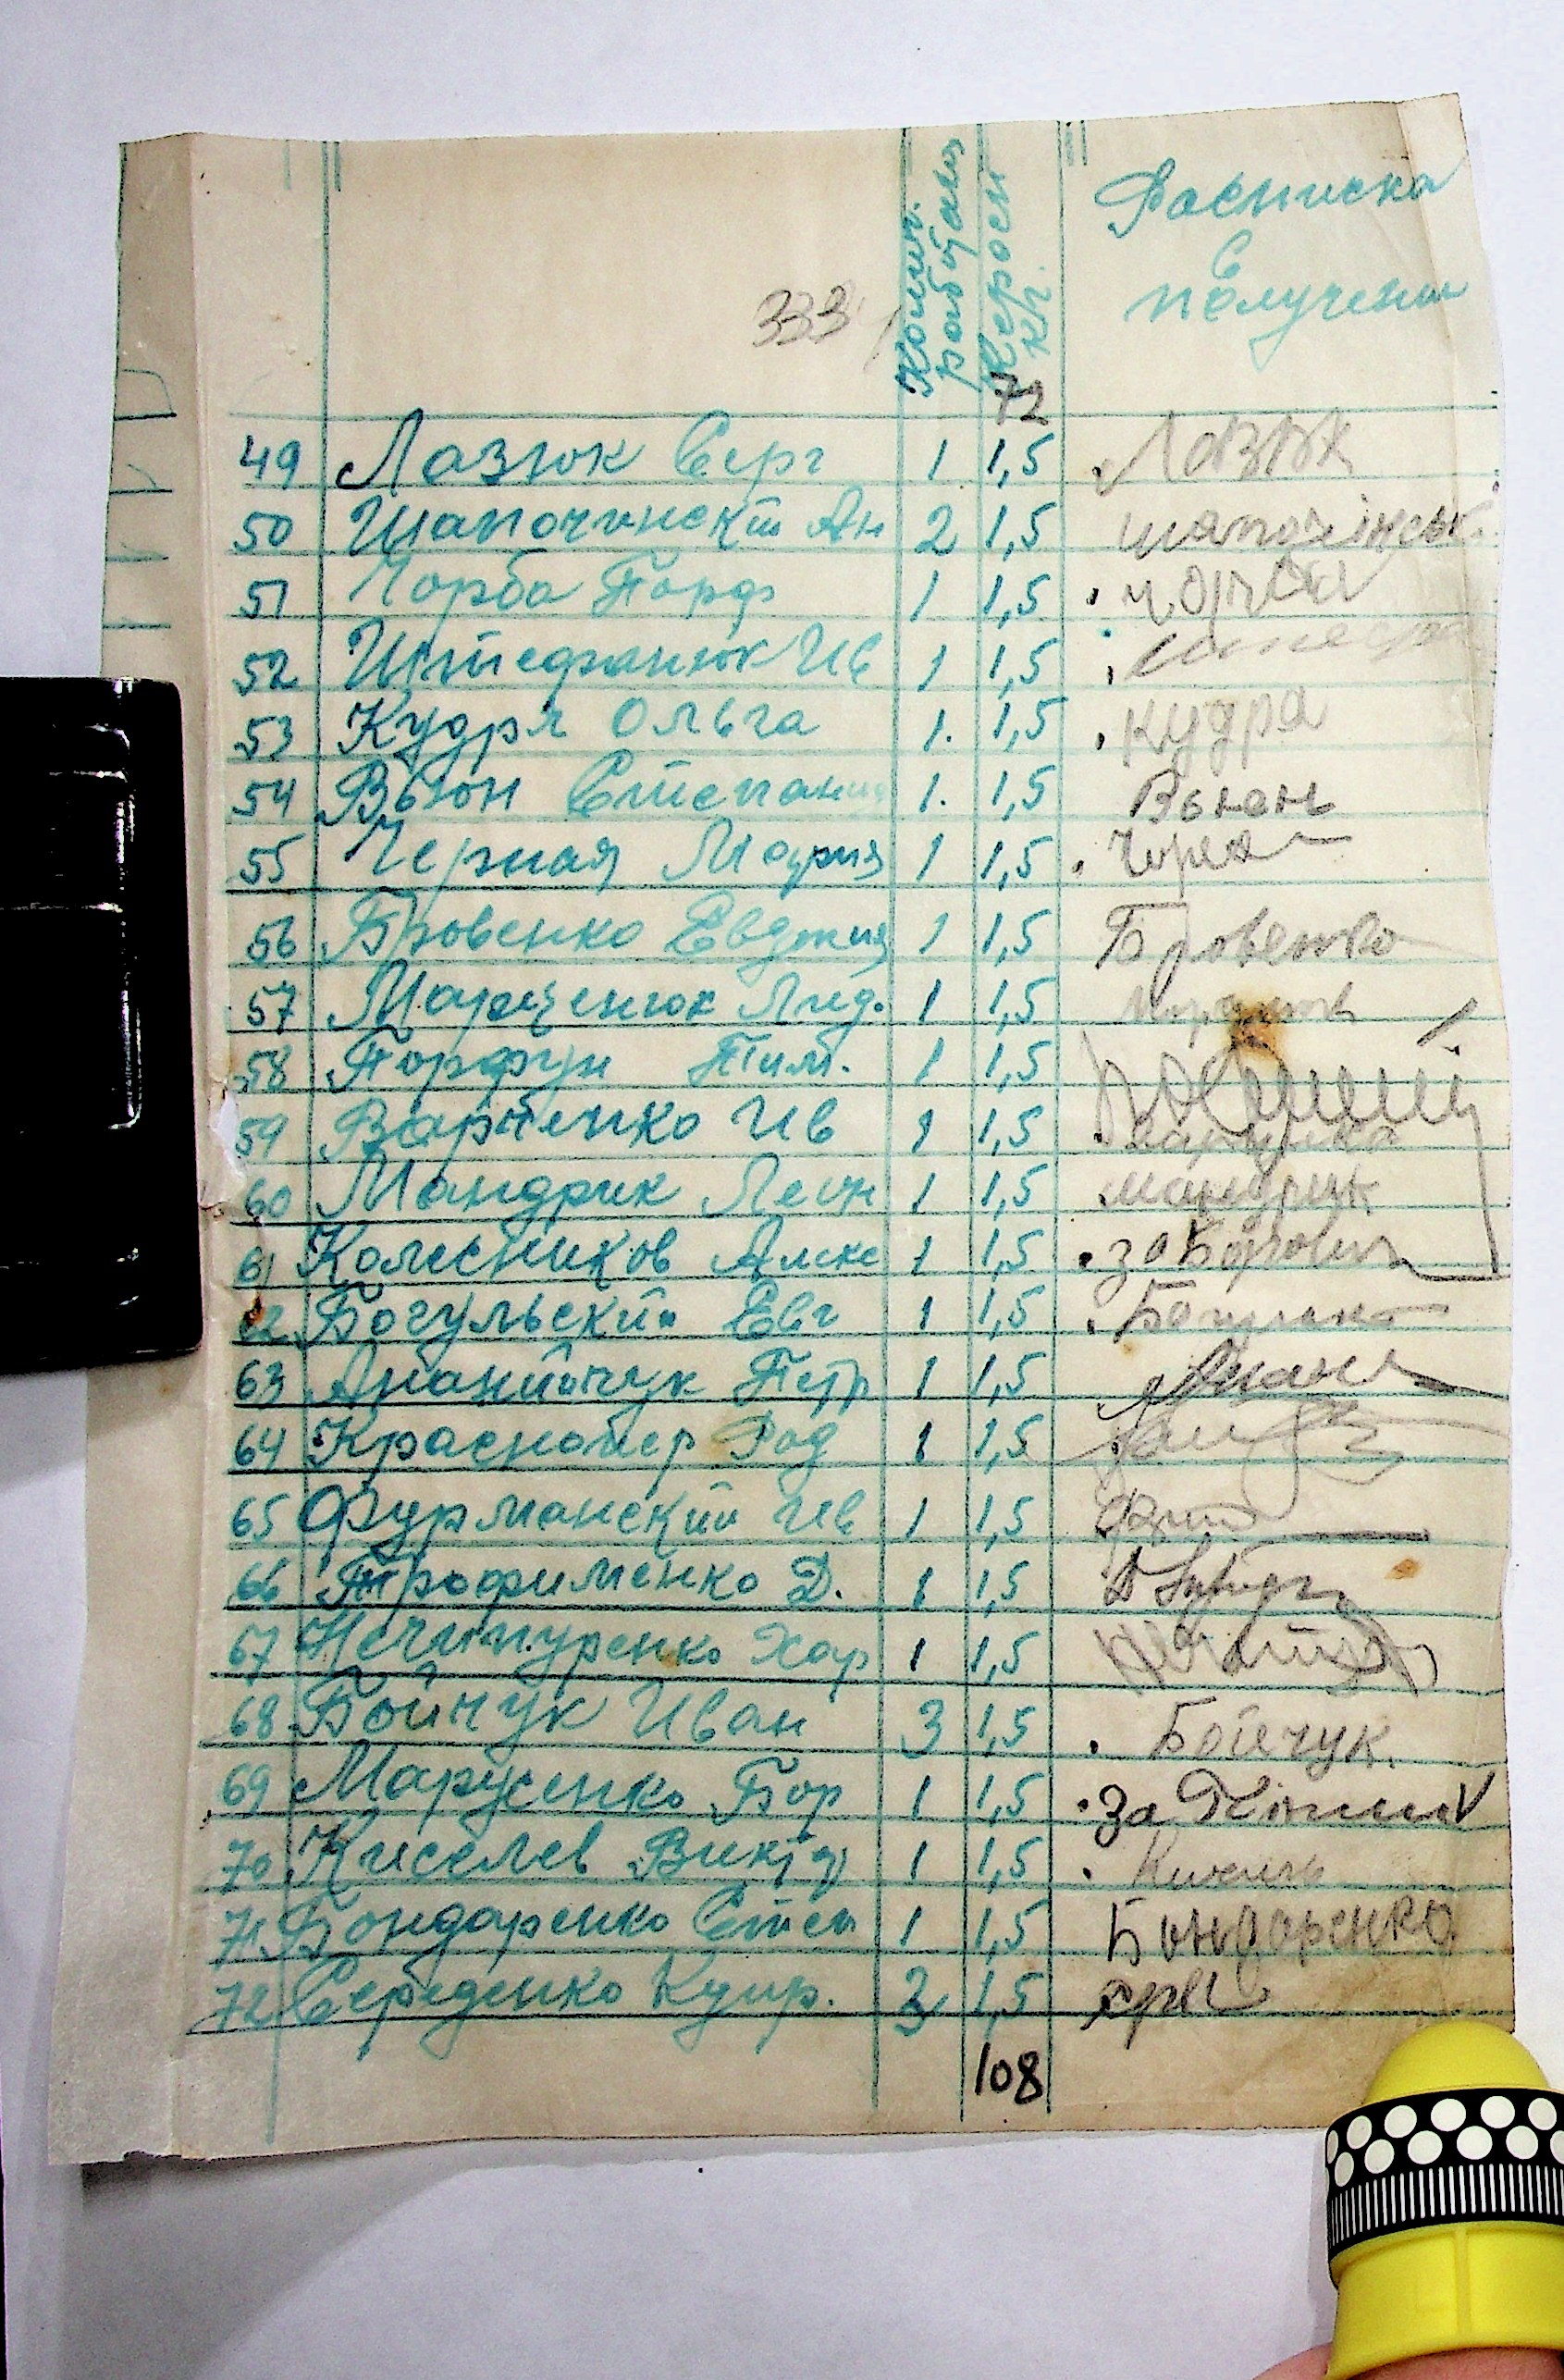 Колич. работающ
Керосин кг.
Расписка
в
получении
333
72
49 Лазюк Серг 1 1,5 Лазюк
50 Шапочинский Ан 2 1,5 шапочінськ
51 Чорба Порф 1 1,5 чорба
52 Штефанюк Ив 1 1,5
53 Кудря Ольга 1. 1,5 Кудра
54 Вьюн Степани 1. 1,5 Вьюнь
55 Черная Мария 1 1,5
56 Бровенко Евдокия 1 1,5 Бровенко
57 Марценюк Лид. 1 1,5
58 Порфун Тим. 1 1,5
59 Варченко Ив 1 1,5
60 Мандрик Леон 1 1,5 Мандрик
61 Колесников Алекс 1 1,5 за
62 Богульский Евг 1 1,5
63 Ананийчук Петр 1 1,5 Анан
64 Красномер Род 1 1,5
65 Фурманский Ив 1 1,5
66 Трофименко Д. 1 1,5
67 Нечипуренко Хар 1 1,5
68 Бойчук Иван 3 1,5 Бойчук.
69 Марусенко Бор 1 1,5 за
70 Киселев Виктор 1 1,5
71 Бондаренко Степ 1 1,5 Бондаренко
72 Середенко Купр. 3 1,5
108